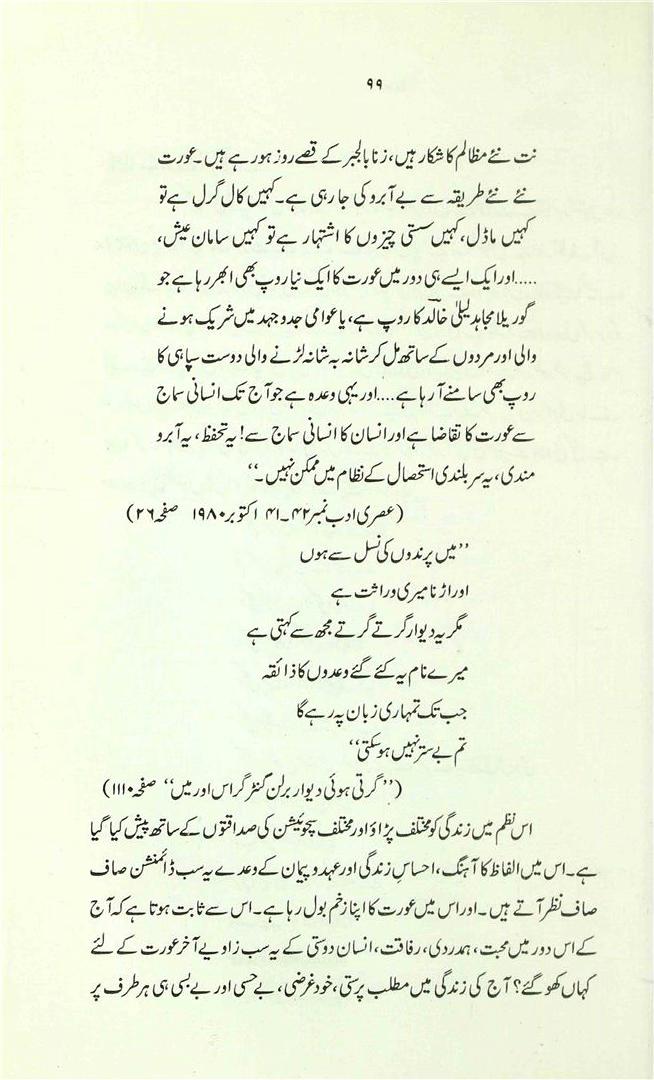 ۹۹
نت نئے مظالم کا شکار ہیں، زنا بالجبر کے قصے روز ہو رہے ہیں۔ عورت
نئے نئے طریقہ سے بے آبرو کی جا رہی ہے۔ کہیں کال گرل ہے تو
کہیں ماڈل، کہیں سستی چیزوں کا اشتہار ہے تو کہیں سامان عیش،
.....اور ایک ایسے ہی دور میں عورت کا ایک نیا روپ بھی ابھر رہا ہے جو
گوریلا مجاہد لیلیٰ خالد کا روپ ہے، یا عوامی جدوجہد میں شریک ہونے
والی اور مردوں کے ساتھ مل کر شانہ بہ شانہ لڑنے والی دوست سپاہی کا
روپ بھی سامنے آ رہا ہے....اور یہی وعدہ ہے جو آج تک انسانی سماج
سے عورت کا تقاضا ہے اور انسان کا انسانی سماج سے! یہ تحفظ، یہ آبرو
مندی، یہ سر بلندی استحصال کے نظام میں ممکن نہیں۔‘‘
(عصری ادب نمبر ۴۲۔۴۱ اکتوبر ۱۹۸۰ صفحہ ۲۶)
’’میں پرندوں کی نسل سے ہوں
اور اڑنا میری وراثت ہے
مگر یہ دیوار گرتے گرتے مجھ سے کہتی ہے
میرے نام یہ کئے گئے وعدوں کا ذائقہ
جب تک تمہاری زبان پہ رہے گا
تم بے ستر نہیں ہو سکتی‘‘
(’’گرتی ہوئی دیوار برلن گنٹر گراس اور میں‘‘ صفحہ ۱۱۱۰)
اس نظم میں زندگی کو مختلف پڑاؤ اور مختلف سچوئیشن کی صداقتوں کے ساتھ پیش کیا گیا
ہے۔ اس میں الفاظ کا آہنگ، احساسِ زندگی اور عہد و پیمان کے وعدے یہ سب ڈائمنشن صاف
صاف نظر آتے ہیں۔ اور اس میں عورت کا اپنا زخم بول رہا ہے۔ اس سے ثابت ہوتا ہے کہ آج
کے اس دور میں محبت، ہمدردی، رفاقت، انسان دوستی کے یہ سب زاویے آخر عورت کے لئے
کہاں کھو گئے؟ آج کی زندگی میں مطلب پرستی، خود غرضی، بے حسی اور بے بسی ہی ہر طرف پر